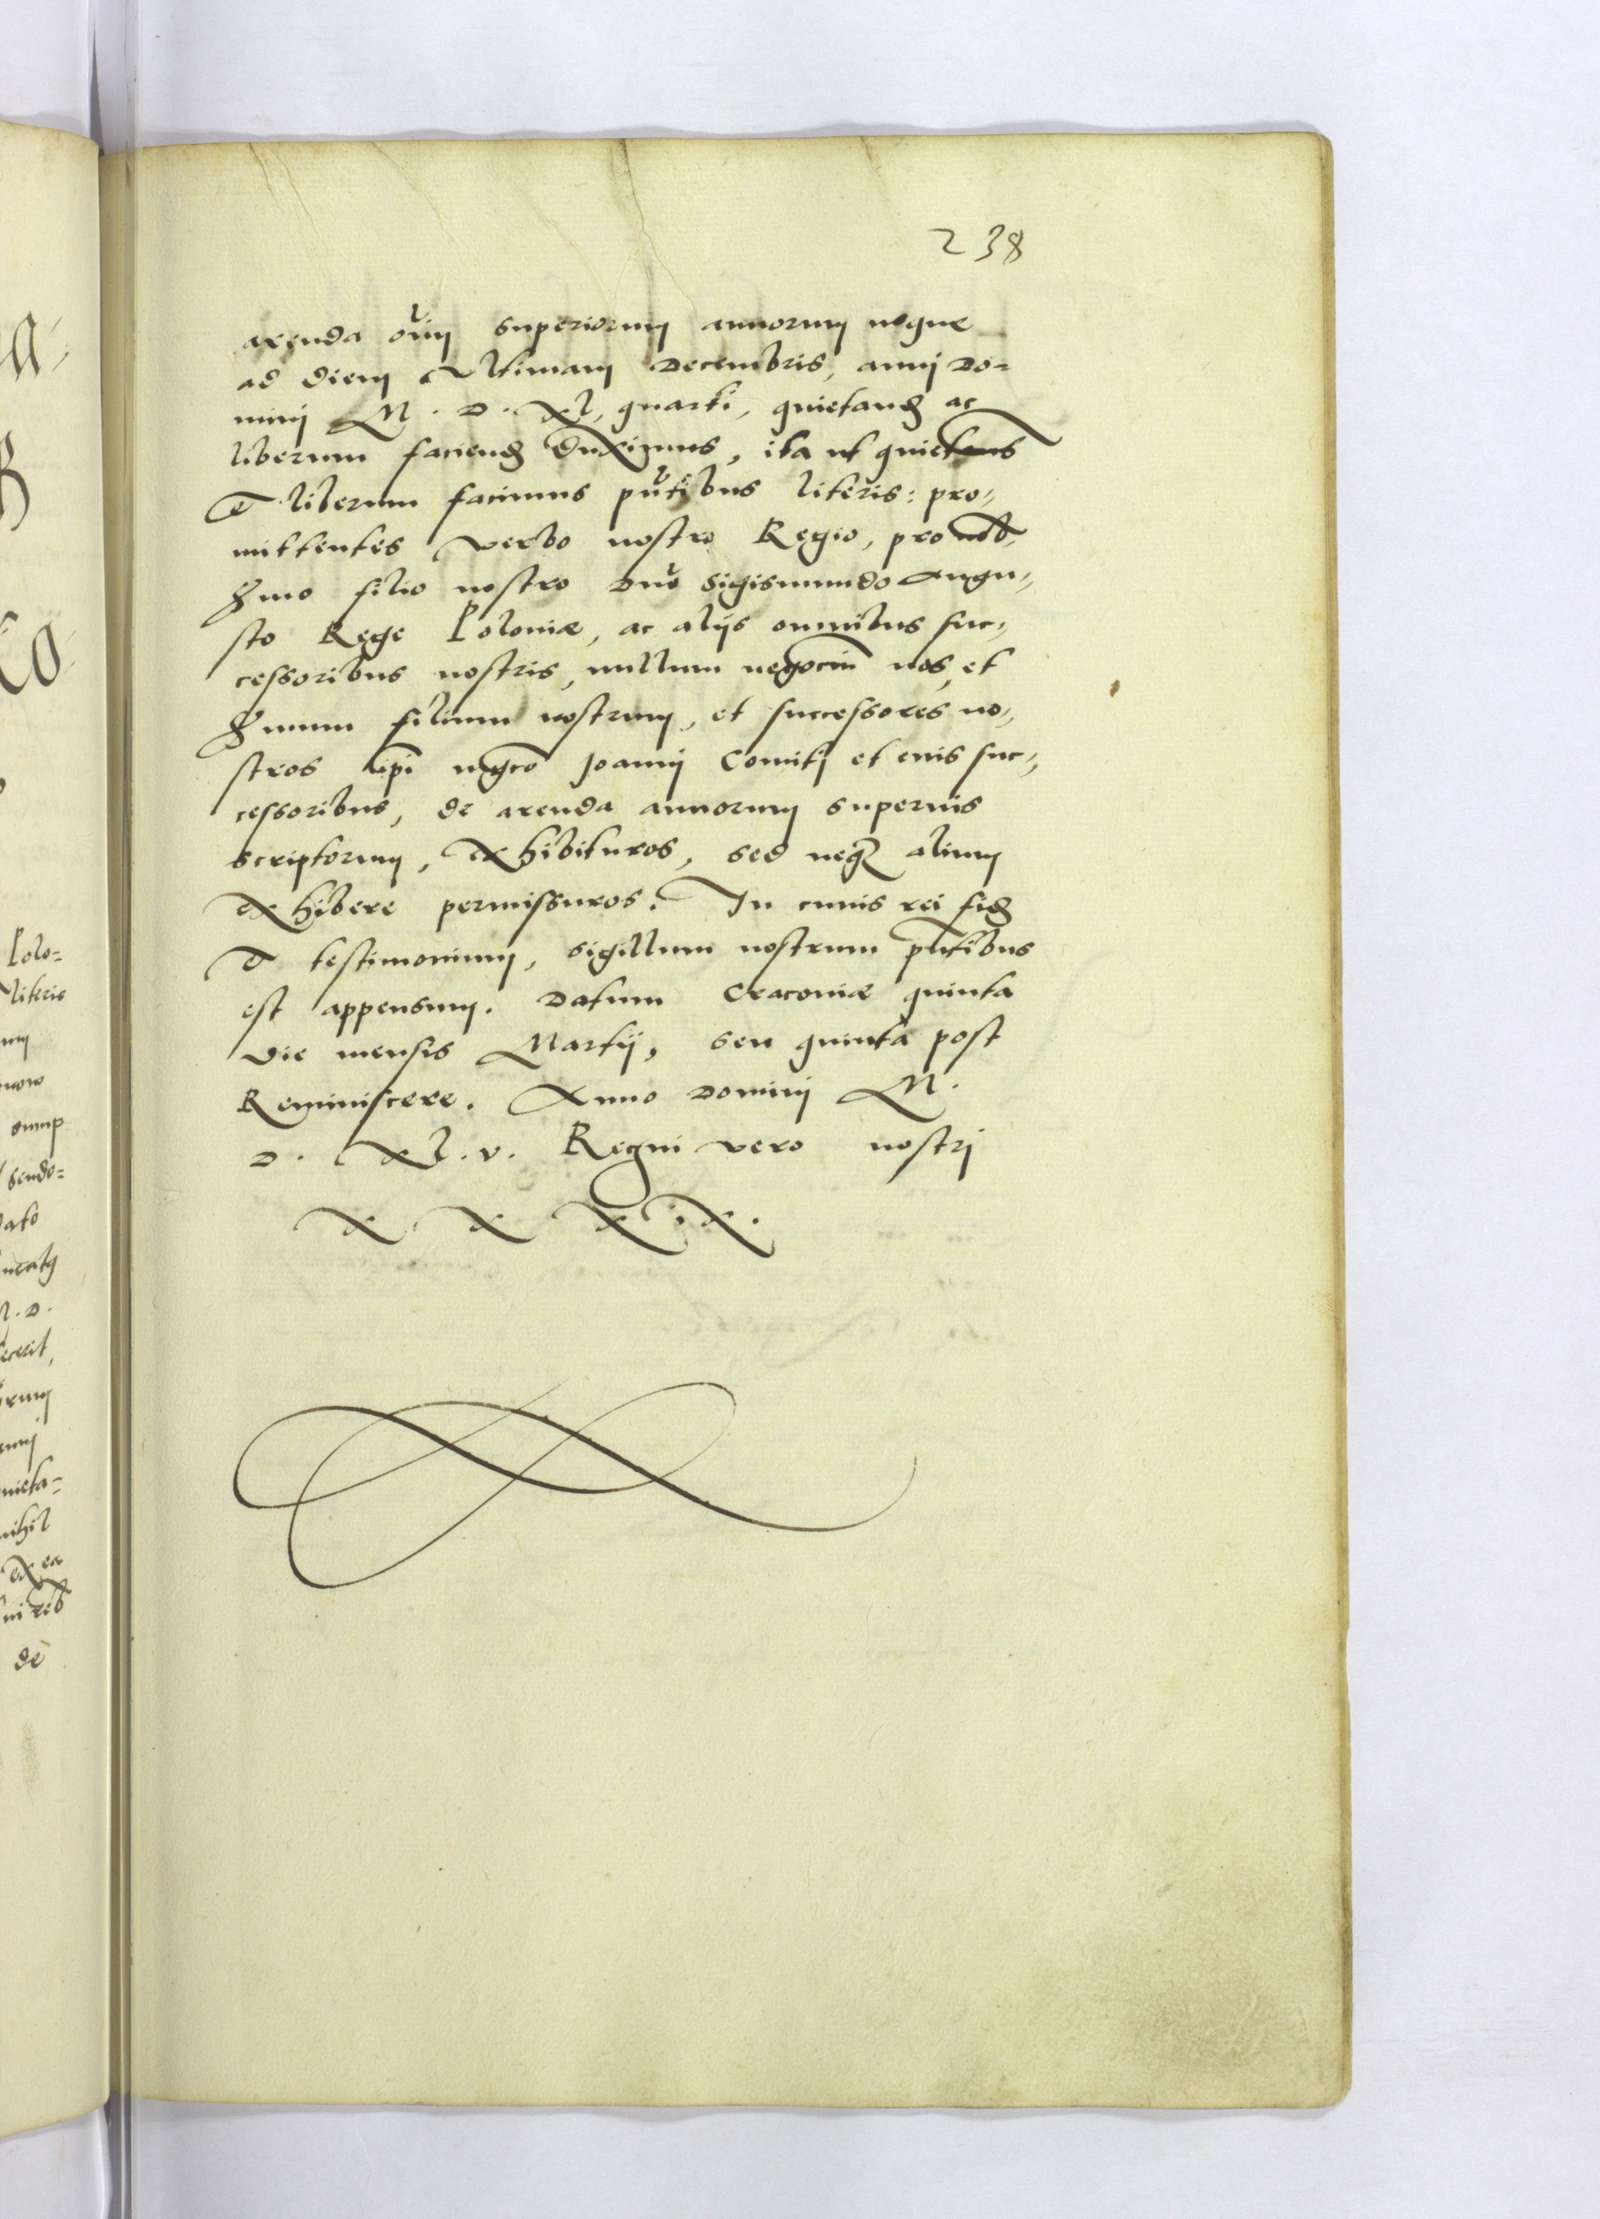 238
arenda om̄ superiorum annorum usque
ad diem ultimam Decembris, anni Do=
mini M. D. XL, quarti, quietand ac
liberum faciend duximus, ita ut quietamus
et liberum facimus pn̄tibus literis: pro=
mittentes verbo nostro Regio, pro nob,
Sermo filio nostro Dno Sigismundo Augu=
sto Rege Poloniæ, ac alijs omnibus suc=
cessoribus nostris, nullum negociū nos, et
Sermum filium nostrum, et successores no=
stros ipi mgco Joanni Comiti et eius suc=
cessoribus, de arenda annorum superius
scriptorum, exhibituros, sed neq alium
exhibere permissuros. In cuius rei fid
et testimonium, sigillum nostrum pn̄tibus
est appensum. Datum Cracoviæ quinta
die mensis Martij, seu quinta post
Reminiscere. Anno Domini M.
D. XL. v. Regni vero nostri
X X X i X.
Polo=
literis
omnp
Sendo=
dato
M. D.
fecerit,
quieta=
nihil
ex ea
de